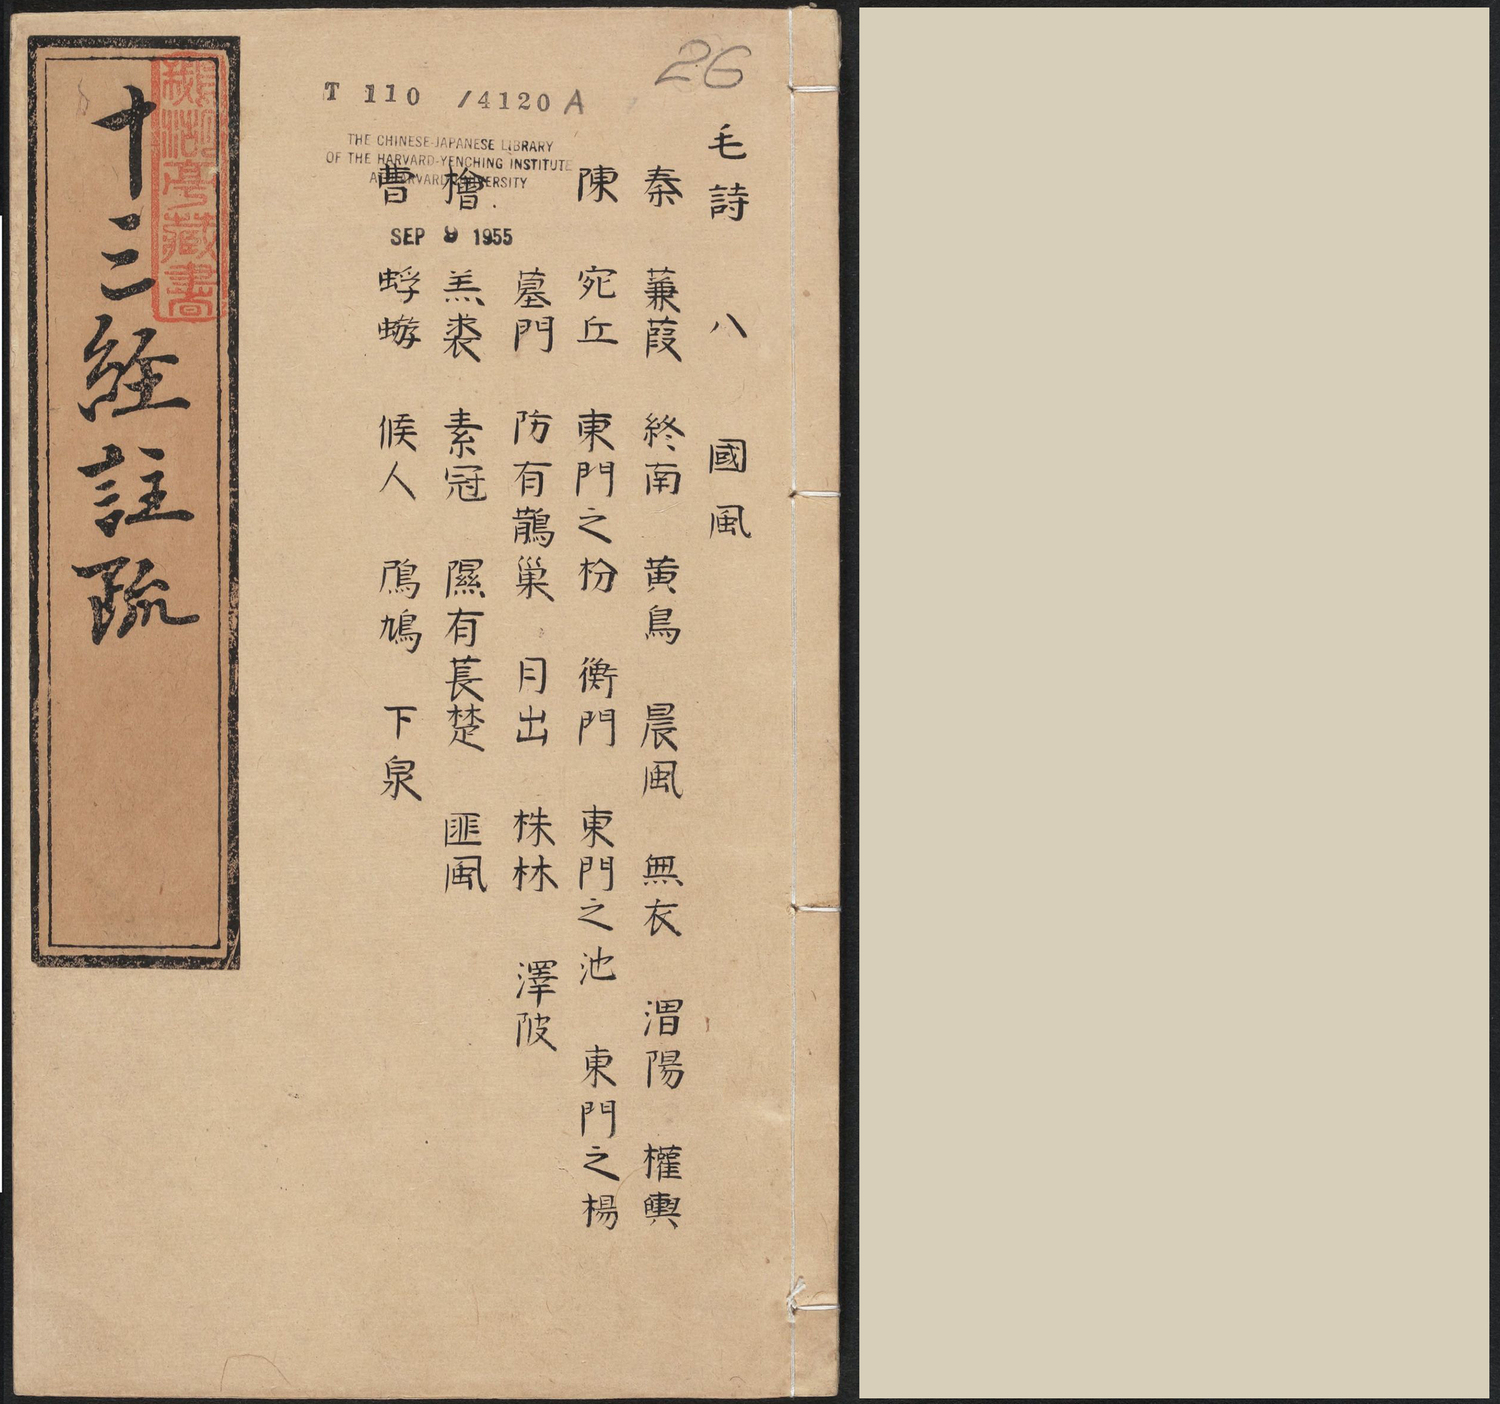 26
T 110 /4120 A
THE CHINESE-JAPANESE LIBRARY
OF THE HARVARD-YENCHING INSTITUTE
AT HARVARD UNIVERSITY
SEP 9 1955
毛詩 八 國風
秦 蒹葭 終南 黃鳥 晨風 無衣 渭陽 權輿
陳 宛丘 東門之枌 衡門 東門之池 東門之楊
墓門 防有鵲巢 月出 株林 澤陂
檜 羔裘 素冠 隰有萇楚 匪風
曹 蜉蝣 候人 鳲鳩 下泉
十三經註疏
湖亭藏書